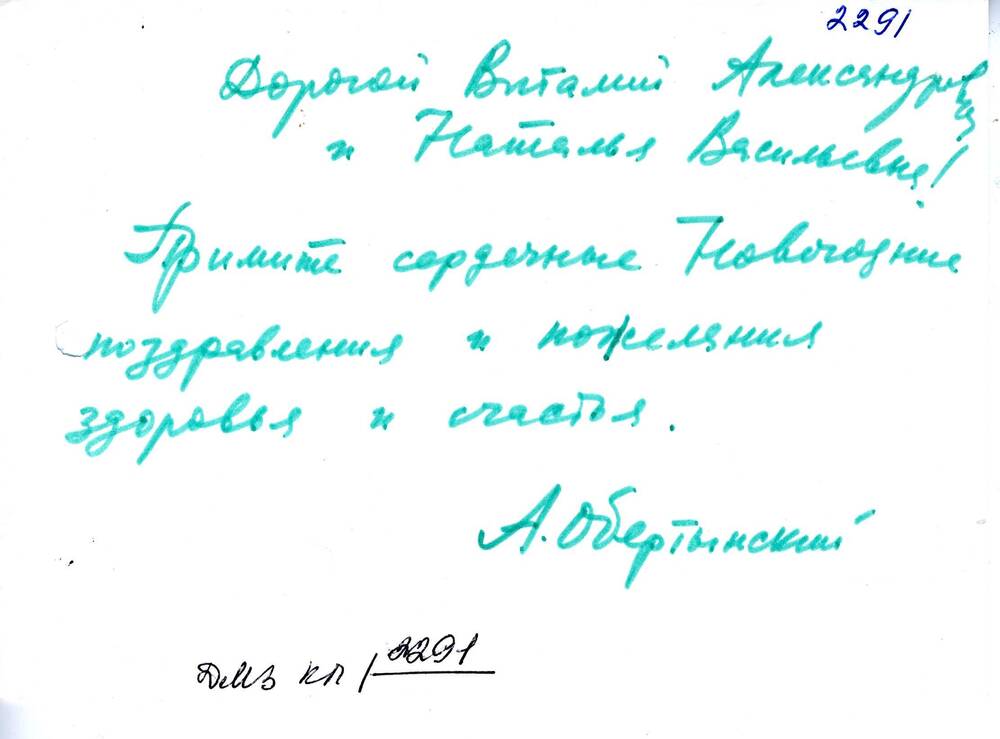 2291
Дорогой Виталий Александрович
и Наталья Васильевна!
Примите сердечные Новогодние
поздравления и пожелания
здоровья и счастья.
А. Обертынский
ДМЗ КП / 2291